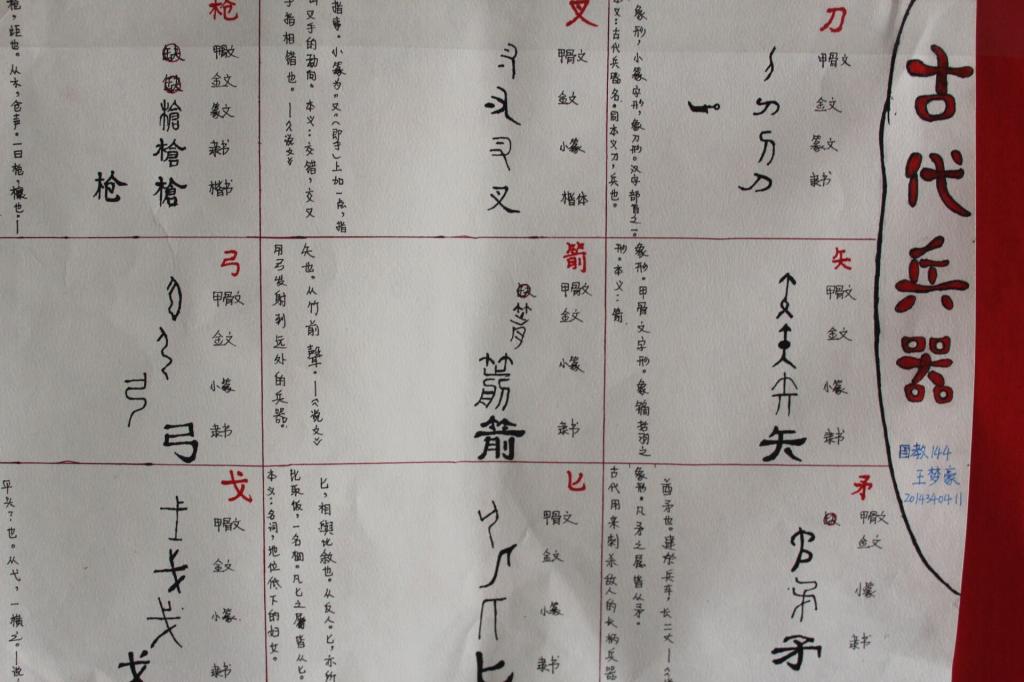 古代兵器
国教144
王梦豪
2014340411
刀
甲骨文
金文
篆文
隶书
象形，小篆字形，象刀形。汉字部首之一。
本义：古代兵器名。同本义刀，兵也。
叉
甲骨文
金文
小篆
楷体
叉
指事。小篆为"又"（即手）上加一点，指
叉手的动向。本义：交错，交叉
手指相错也。——《说文》
枪
甲骨文
金文
篆文
隶书
楷书
缺
缺
槍
槍
槍
枪
枪，距也。从木，仓声。一曰枪，欀也。——
矢
甲骨文
金文
小篆
隶书
矢
象形。甲骨文字形。象镝栝羽之
形。本义：箭
箭
甲骨文
金文
小篆
隶书
缺
箭
箭
矢也。从竹前聲。——《说文》
用弓发射到远处的兵器。
弓
甲骨文
金文
小篆
隶书
弓
矛
甲骨文
金文
小篆
隶书
缺
矛
酋矛也。建于兵车，长二丈——《说文
象形。凡矛之属皆从矛。
古代用来刺杀敌人的长柄兵器
匕
甲骨文
金文
小篆
隶书
匕
匕，相與比敘也。从反人。匕，亦所
比取饭，一名柶。凡匕之屬皆从匕。
本义：名词，地位低下的妇女。
戈
甲骨文
金文
小篆
隶书
戈
平头？也。从弋，一横之。——说